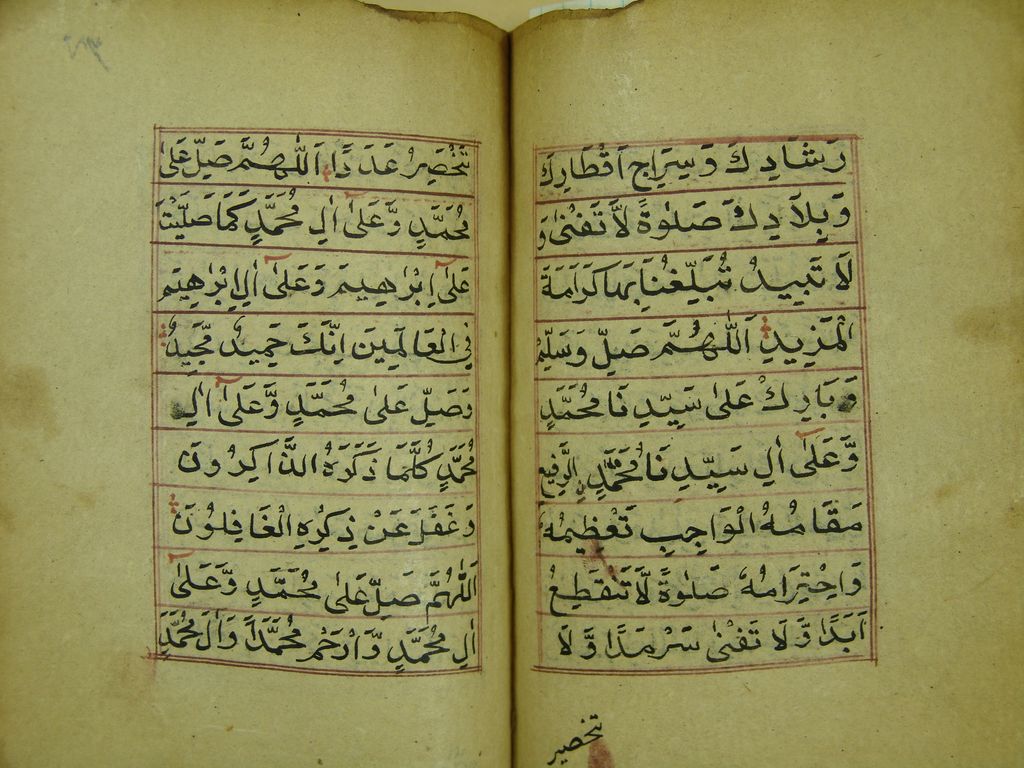 رَشَادِكَ وَسِرَاجِ اَقْطَارِكَ
وَبِلَادِكَ صَلٰوةً لَّا تَفْنٰى وَ
لَا تَبِيدُ تُبَلِّغُنَا بِهَا كَرَامَةَ
الْمَزِيدِ اَللّٰهُمَّ صَلِّ وَسَلِّمْ
وَبَارِكْ عَلٰى سَيِّدِنَا مُحَمَّدٍ
وَّعَلٰى اٰلِ سَيِّدِنَا مُحَمَّدٍ الرَّفِيعِ
مَقَامُهُ الْوَاجِبِ تَعْظِيمُهُ
وَاحْتِرَامُهُ صَلٰوةً لَّا تَنْقَطِعُ
اَبَدًا وَّلَا تَفْنٰى سَرْمَدًا وَّلَا
تنخصير
تَنْخَصِرُ عَدَدًا اَللّٰهُمَّ صَلِّ عَلٰى
مُحَمَّدٍ وَّعَلٰى اٰلِ مُحَمَّدٍ كَمَا صَلَّيْتَ
عَلٰى اِبْرٰهِيمَ وَعَلٰى اٰلِ اِبْرٰهِيمَ
فِي الْعَالَمِينَ اِنَّكَ حَمِيدٌ مَّجِيدٌ
وَصَلِّ عَلٰى مُحَمَّدٍ وَّعَلٰى اٰلِ
مُحَمَّدٍ كُلَّمَا ذَكَرَهُ الذَّاكِرُونَ
وَغَفَلَ عَنْ ذِكْرِهِ الْغَافِلُونَ
اَللّٰهُمَّ صَلِّ عَلٰى مُحَمَّدٍ وَّعَلٰى
اٰلِ مُحَمَّدٍ وَّارْحَمْ مُحَمَّدًا وَّاٰلَ مُحَمَّدٍ